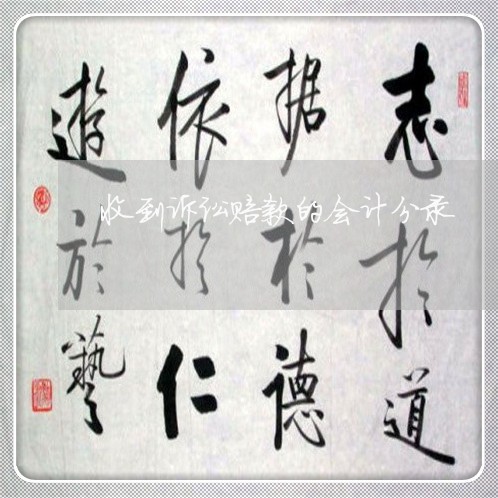 志於道
据於德
依於仁
遊於藝
收到诉讼赔款的会计分录